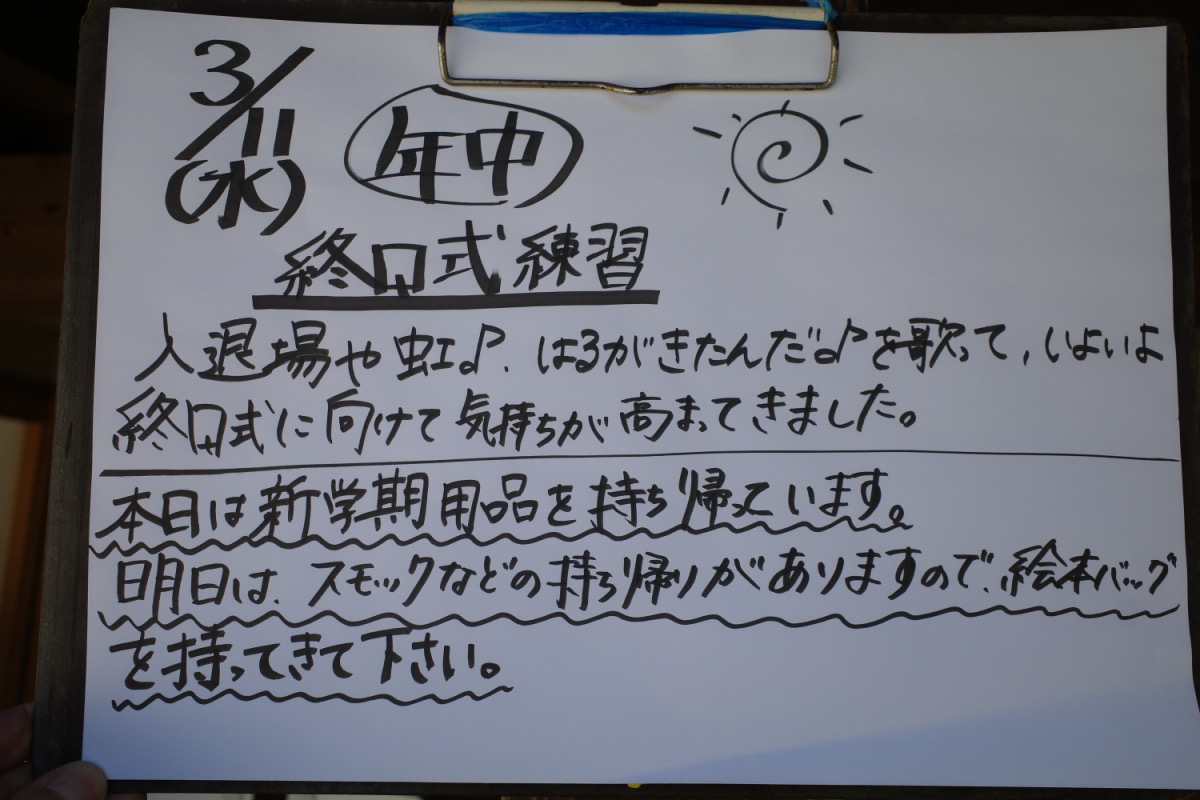 3/11
(水) 年中
終日式練習
入退場や虹♪、はるがきたんだ♪を歌って、いよいよ
終日式に向けて気持ちが高まってきました。
本日は新学期用品を持ち帰っています。
明日は、スモックなどの持ち帰りがありますので、絵本バッグ
を持ってきて下さい。